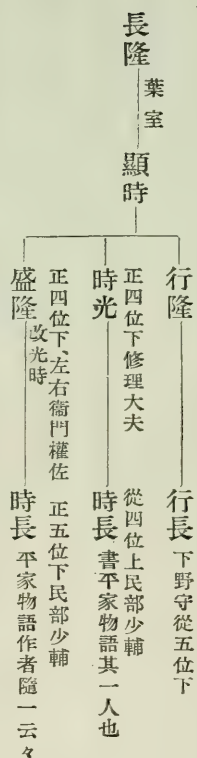 長隆
葉室
顯時
行隆
行長 下野守從五位下
正四位下修理大夫
時光
從四位上民部少輔
時長 書平家物語其一人也
正四位下、左右衞門權佐
盛隆 改光時
正五位下民部少輔
時長 平家物語作者隨一云々